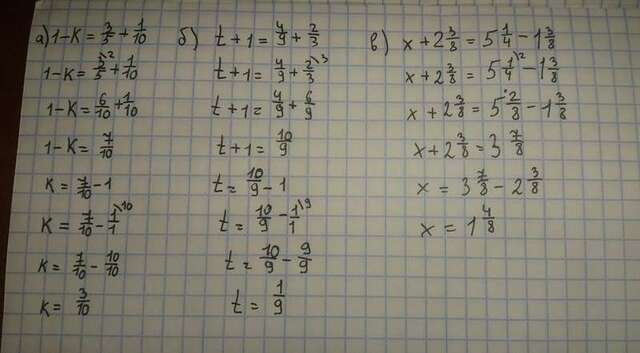 а) 1-K = 3/5 + 1/10
1-K = 3/5\2 + 1/10
1-K = 6/10 + 1/10
1-K = 7/10
K = 7/10 - 1
K = 7/10 - 1/1\10
K = 7/10 - 10/10
K = 3/10
б) t + 1 = 4/9 + 2/3
t + 1 = 4/9 + 2/3\3
t + 1 = 4/9 + 6/9
t + 1 = 10/9
t = 10/9 - 1
t = 10/9 - 1/1\9
t = 10/9 - 9/9
t = 1/9
в) x + 2 3/8 = 5 1/4 - 1 3/8
x + 2 3/8 = 5 1/4\2 - 1 3/8
x + 2 3/8 = 5 2/8 - 1 3/8
x + 2 3/8 = 3 7/8
x = 3 7/8 - 2 3/8
x = 1 4/8